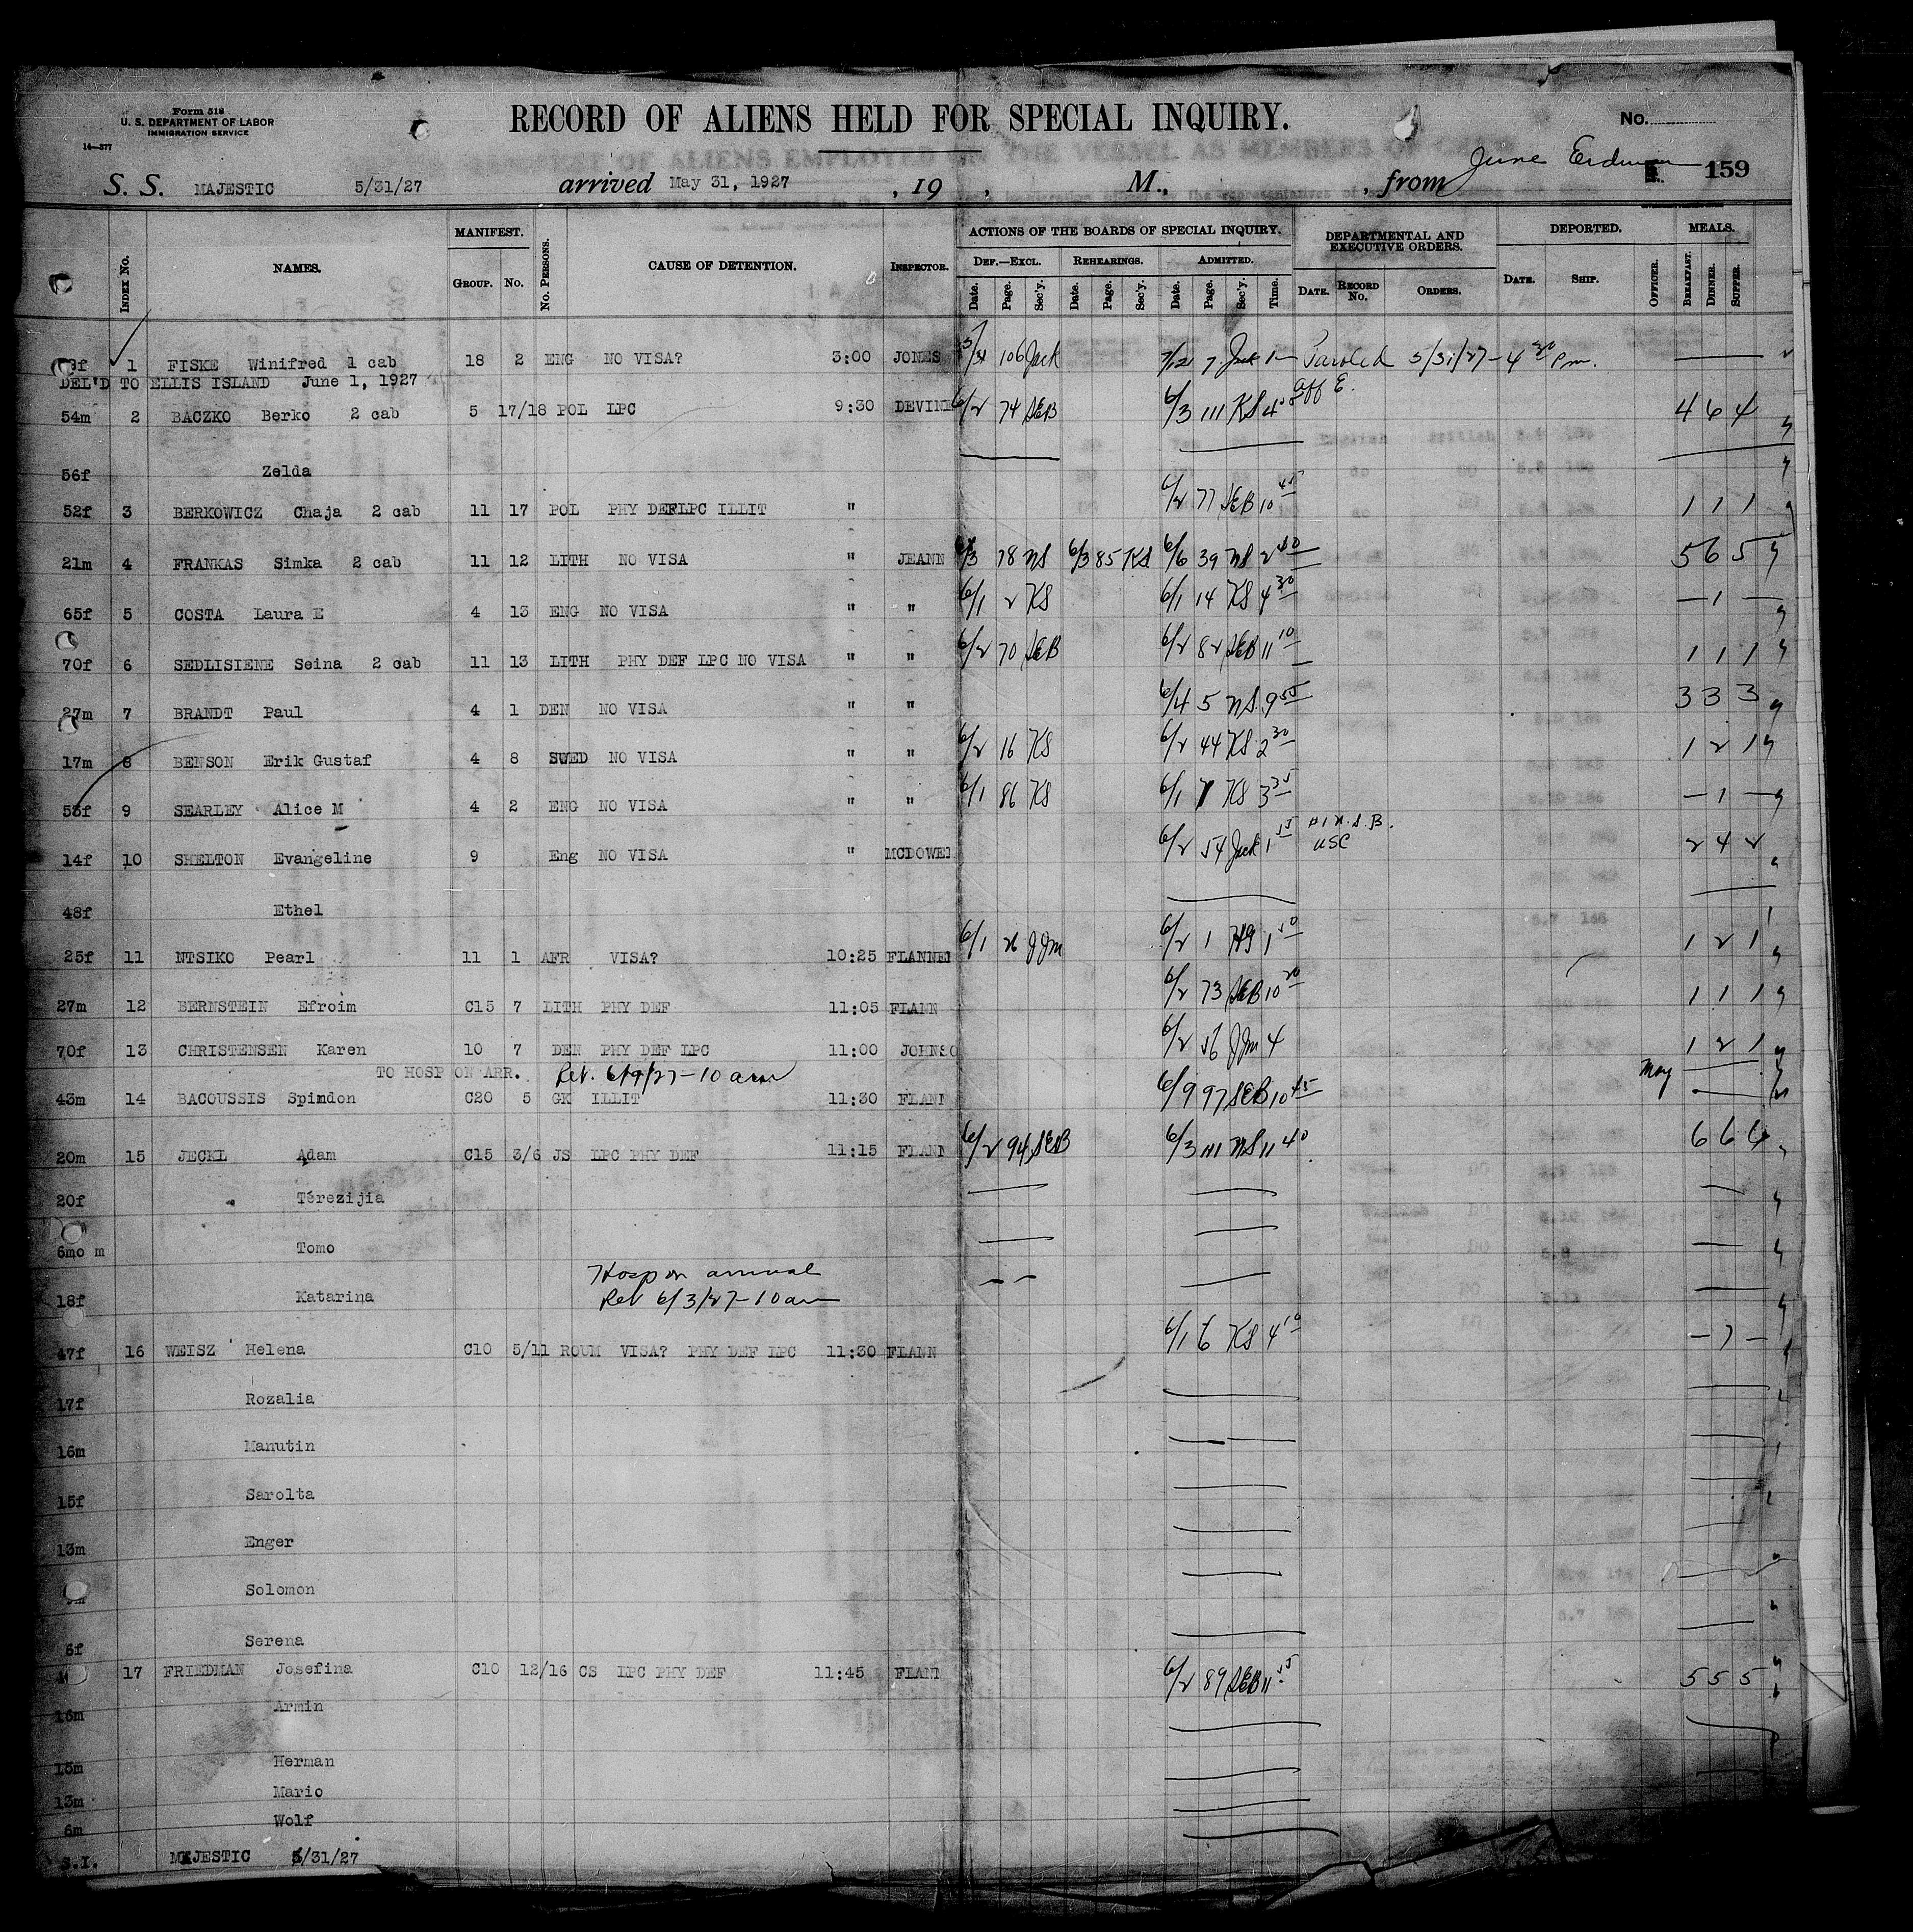 Form 518
U. S. DEPARTMENT OF LABOR
IMMIGRATION SERVICE
14—377
RECORD OF ALIENS HELD FOR SPECIAL INQUIRY.
No.
S. S. MAJESTIC 5/31/27 arrived May 31, 1927 , 19 , M., , from June 159
MANIFEST. ACTIONS OF THE BOARDS OF SPECIAL INQUIRY. DEPARTMENTAL AND EXECUTIVE ORDERS. DEPORTED. MEALS.
DEF.—EXCL. REHEARINGS. ADMITTED.
INDEX No. NAMES. GROUP. No. No. PERSONS. CAUSE OF DETENTION. INSPECTOR. Date. Page. Sec'y. Date. Page. Sec'y. Date. Page. Sec'y. Time. DATE. RECORD No. ORDERS. DATE. SHIP. OFFICER. BREAKFAST. DINNER. SUPPER.
1 FISKE Winifred 1 cab 18 2 ENG NO VISA? 3:00 JONES 5/31 106 Jack 7 Paroled 5/31/27 - 4 30 Pm.
DEL'D TO ELLIS ISLAND June 1, 1927
54m 2 BACZKO Berko 2 cab 5 17/18 POL LPC 9:30 DEVINE 6/2 74 SEB 6/3 111 KS 4 4 6 4
56f Zelda
52f 3 BERKOWICZ Chaja 2 cab 11 17 POL PHY DEF LPC ILLIT " 6/2 77 SEB 10 45 1 1 1
21m 4 FRANKAS Simka 2 cab 11 12 LITH NO VISA " JEANN 6/3 78 NS 6/3 85 KS 6/6 39 NS 2 40 5 6 5
65f 5 COSTA Laura E 4 13 ENG NO VISA " " 6/1 2 KS 6/1 14 KS 4 30 — 1 —
70f 6 SEDLISIENE Seina 2 cab 11 13 LITH PHY DEF LPC NO VISA " " 6/2 70 SEB 6/2 82 SEB 11 10 1 1 1
27m 7 BRANDT Paul 4 1 DEN NO VISA " " 6/4 5 NS 9 55 3 3 3
17m 8 BENSON Erik Gustaf 4 8 SWED NO VISA " " 6/2 16 KS 6/2 44 KS 2 30 1 2 1
53f 9 SEARLEY Alice M 4 2 ENG NO VISA " " 6/1 86 KS 6/1 KS 3 35 — 1 —
14f 10 SHELTON Evangeline 9 Eng NO VISA " MCDOWEL 6/2 54 Jack 1 55 USC 2 4 2
48f Ethel
25f 11 NTSIKO Pearl 11 1 AFR VISA? 10:25 FLANNEN 6/1 26 JJM 6/2 1 HG 1 50 1 2 1
27m 12 BERNSTEIN Efroim C15 7 LITH PHY DEF 11:05 FLANN 6/2 73 SEB 10 20 1 1 1
70f 13 CHRISTENSEN Karen 10 7 DEN PHY DEF LPC 11:00 JOHNSO 6/2 56 JJM 4 1 2 1
TO HOSP ON ARR. Rel. 6/9/27 - 10 am May
43m 14 BACOUSSIS Spindon C20 5 GK ILLIT 11:30 FLANN 6/9 97 SEB 10 45
20m 15 JECKL Adam C15 3/6 JS LPC PHY DEF 11:15 FLANN 6/2 94 SEB 6/3 111 NS 11 40 6 6 6
20f Terezijia
6mo m Tomo
Hosp on arrival
18f Katarina Rel 6/3/27 - 10 am
47f 16 WEISZ Helena C10 5/11 ROUM VISA? PHY DEF LPC 11:30 FLANN 6/1 6 KS 4 10 — 7 —
17f Rozalia
16m Manutin
15f Sarolta
13m Enger
Solomon
6f Serena
17 FRIEDMAN Josefina C10 12/16 CS LPC PHY DEF 11:45 FLANN 6/2 89 SEB 11 55 5 5 5
16m Armin
15m Herman
13m Mario
6m Wolf
S.I. MAJESTIC 5/31/27